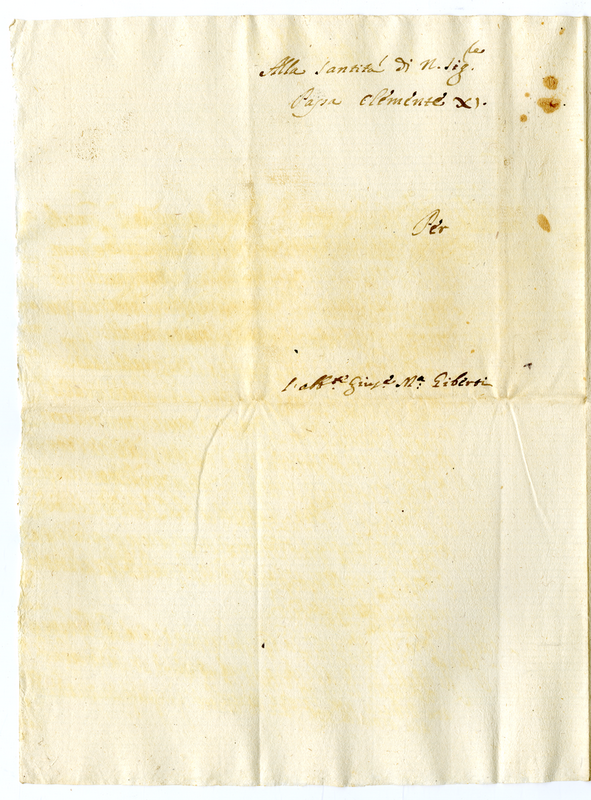 Alla Santità di N. Sig.re
Papa Clemente XI.
Per
L'abb.te Gius.e M.a Giberti